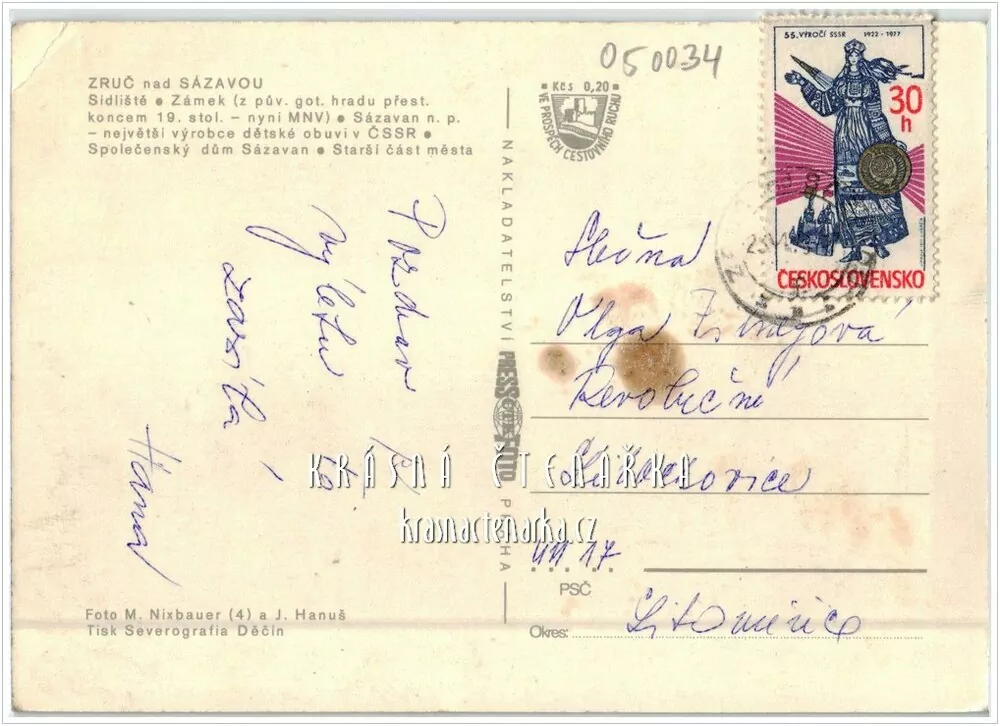 ZRUČ nad SÁZAVOU
Sídliště • Zámek (z pův. got. hradu přest.
koncem 19. stol. – nyní MNV) • Sázavan n. p.
– největší výrobce dětské obuvi v ČSSR •
Společenský dům Sázavan • Starší část města
Pozdrav z
výletu
Hana
Foto M. Nixbauer (4) a J. Hanuš
Tisk Severografia Děčín
NAKLADATELSTVÍ PRESSFOTO PRAHA
050034
Kčs 0,20
VE PROSPĚCH CESTOVNÍHO RUCHU
55. VÝROČÍ SSSR 1922 - 1977
30 h
ČESKOSLOVENSKO
Slečna
Olga
PSČ
Okres: Litoměřice
KRÁSNÁ ČTENÁŘKA
krasnactenarka.cz